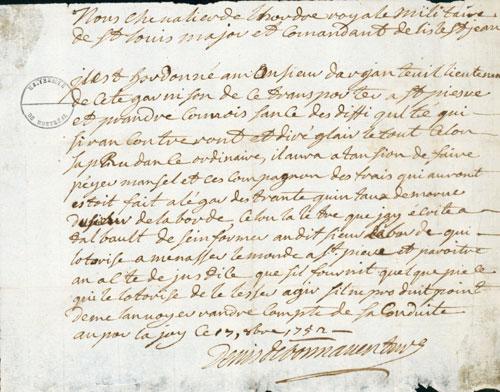 Nous chevalier de lhordre royale Militaire
de St Louis major et Comandant de lisle St Jean
il est hordonné a monsieur dargenteuil lieutenan
de cete garnison de ce transporter a St pierre
et prandre connois sance des diffi qultié qui
si rancontreront et di réglair le tout celon
sa prudance ordinaire, il aura atansion de faire
péyer mansel et ces compagnon des frais qui auront
estoit fait a légar des trante quintaux de morue
du sieur de la borde celon la letre que jay ecrite a
talbault de sein former au dit sieur laborde qui
lotorise a menasser le monde a St piere et paroitre
an alte de justice que sil fournit quelque pie ce
qui le lotorise de le lesser agir sil ne produit point
de me anvoyer randre compte de sa Conduite
au por la joy ce 17 8bre 1752
Denis de Bonnaventure
DE MONTREAL